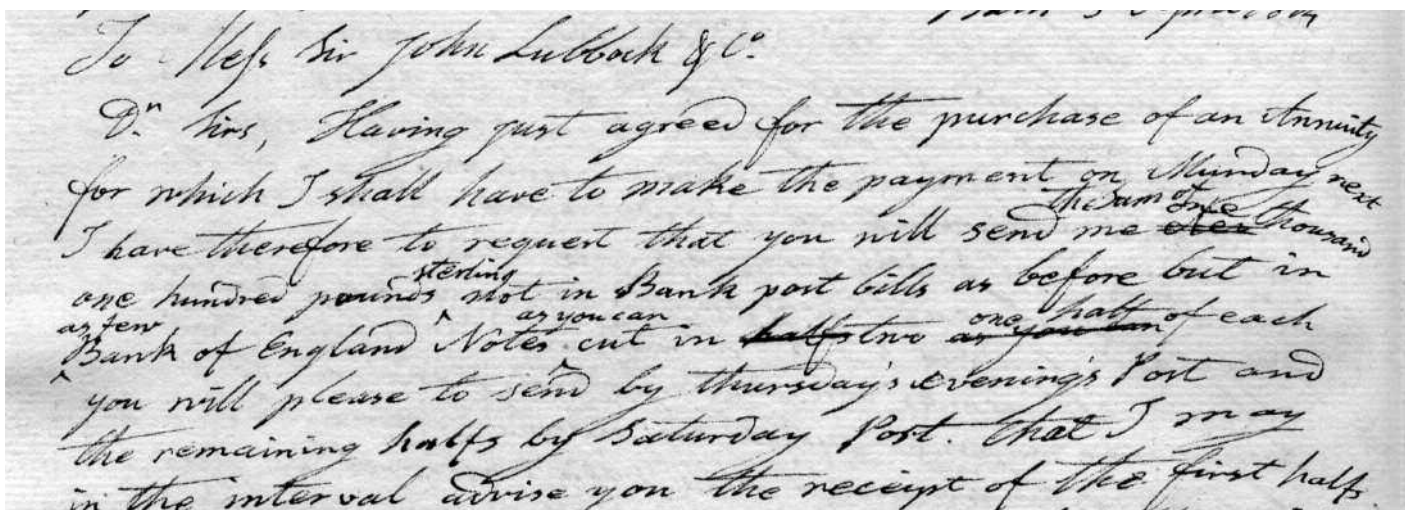 To Mess Sir John Lubbock & Co.
Dr. Sirs, Having just agreed for the purchase of an Annuity
for which I shall have to make the payment on Munday next
the sum of one
I have therefore to request that you will send me thousand
sterling
one hundred pounds not in Bank post bills as before but in
as few as you can one half
Bank of England Notes cut in halfs two as you can of each
you will please to send by thursday's evening's Post and
the remaining halfs by Saturday Post. that I may
in the interval advise you the receipt of the first halfs.